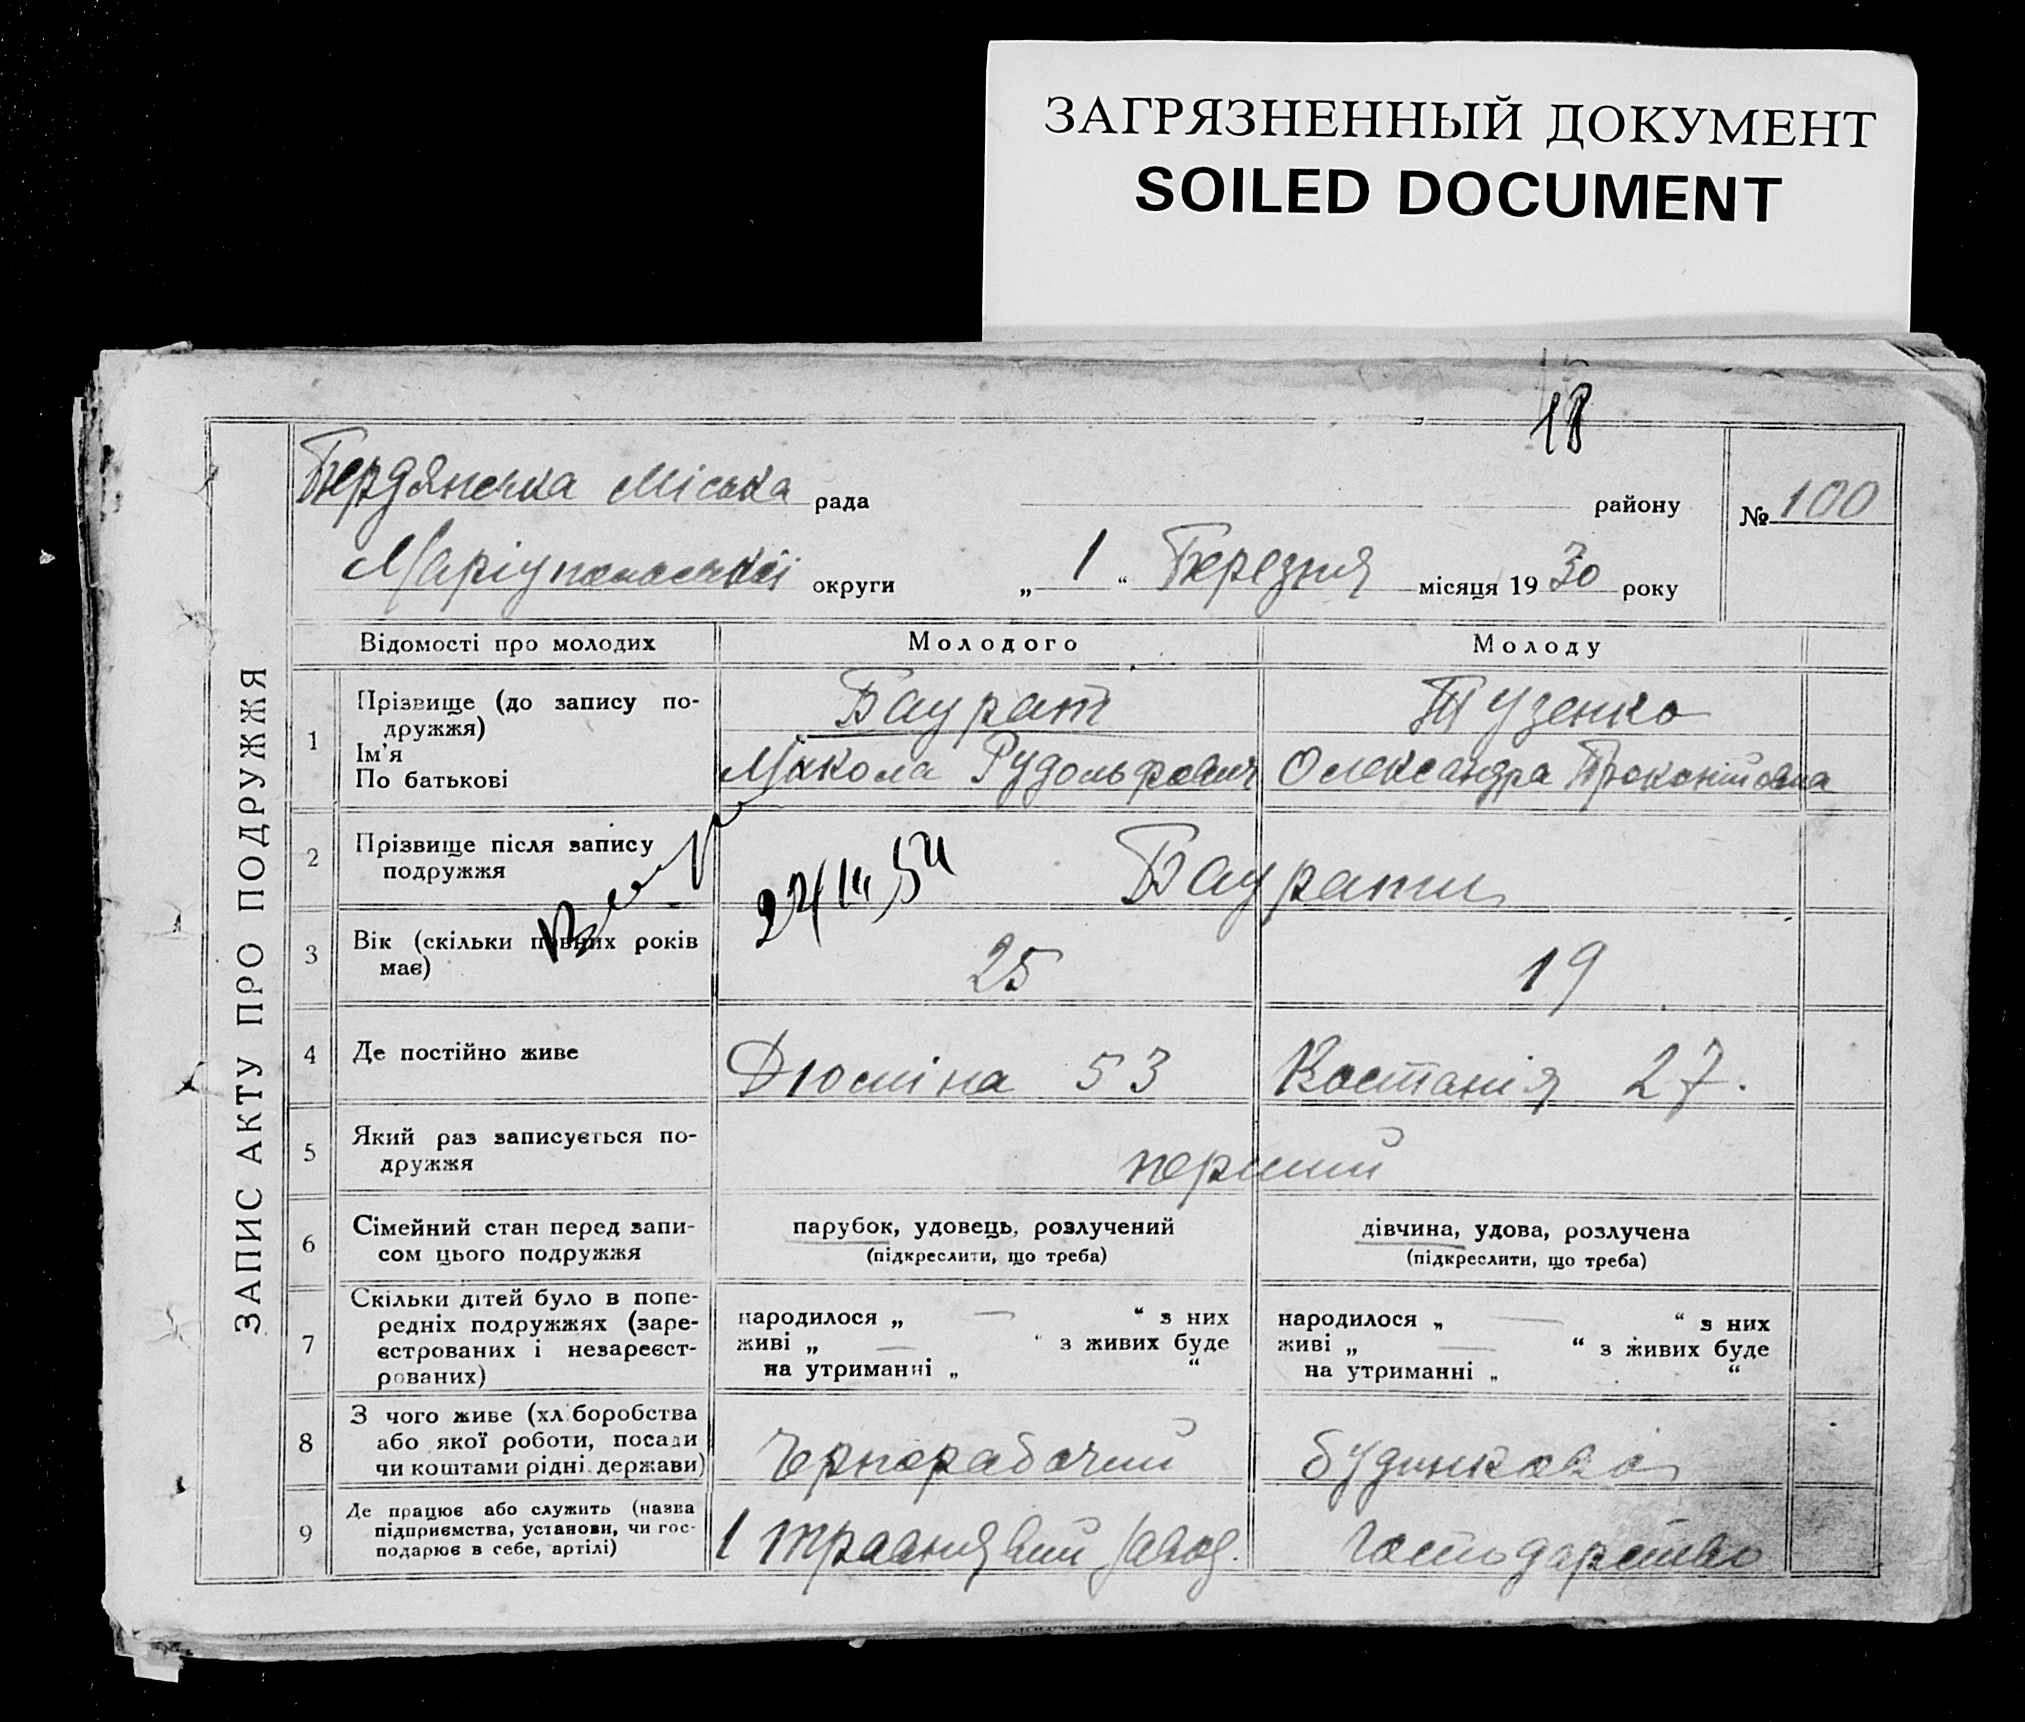 ЗАГРЯЗНЕННЫЙ ДОКУМЕНТ
SOILED DOCUMENT
18
ЗАПИС АКТУ ПРО ПОДРУЖЖЯ
Бердянська Міська рада району
№ 100
Маріупольської округи „ 1 “ Березня місяця 19 30 року
Відомості про молодих Молодого Молоду
1 Прізвище (до запису по-
дружжя)
Ім'я
По батькові
Баурат
Микола Рудольфович
Тузенко
Олександра Прокопівна
2 Прізвище після запису
подружжя
22/III 54
Баурати
3 Вік (скільки повних років
має)
25 19
4 Де постійно живе
Дюміна 53 27.
5 Який раз записується по-
дружжя
перший
6 Сімейний стан перед запи-
сом цього подружжя
парубок, удовець, розлучений
(підкреслити, що треба)
дівчина, удова, розлучена
(підкреслити, що треба)
7 Скільки дітей було в попе-
редніх подружжях (заре-
єстрованих і незареєст-
рованих)
народилося „ — “ з них
живі „ — “ з живих буде
на утриманні „ “
народилося „ — “ з них
живі „ — “ з живих буде
на утриманні „ “
8 З чого живе (хліборобства
або якої роботи, посади
чи коштами рідні держави)
Чернорабочий
9 Де працює або служить (назва
підприємства, установи, чи гос-
подарює в себе, артілі)
1 Травня завод.
господарство